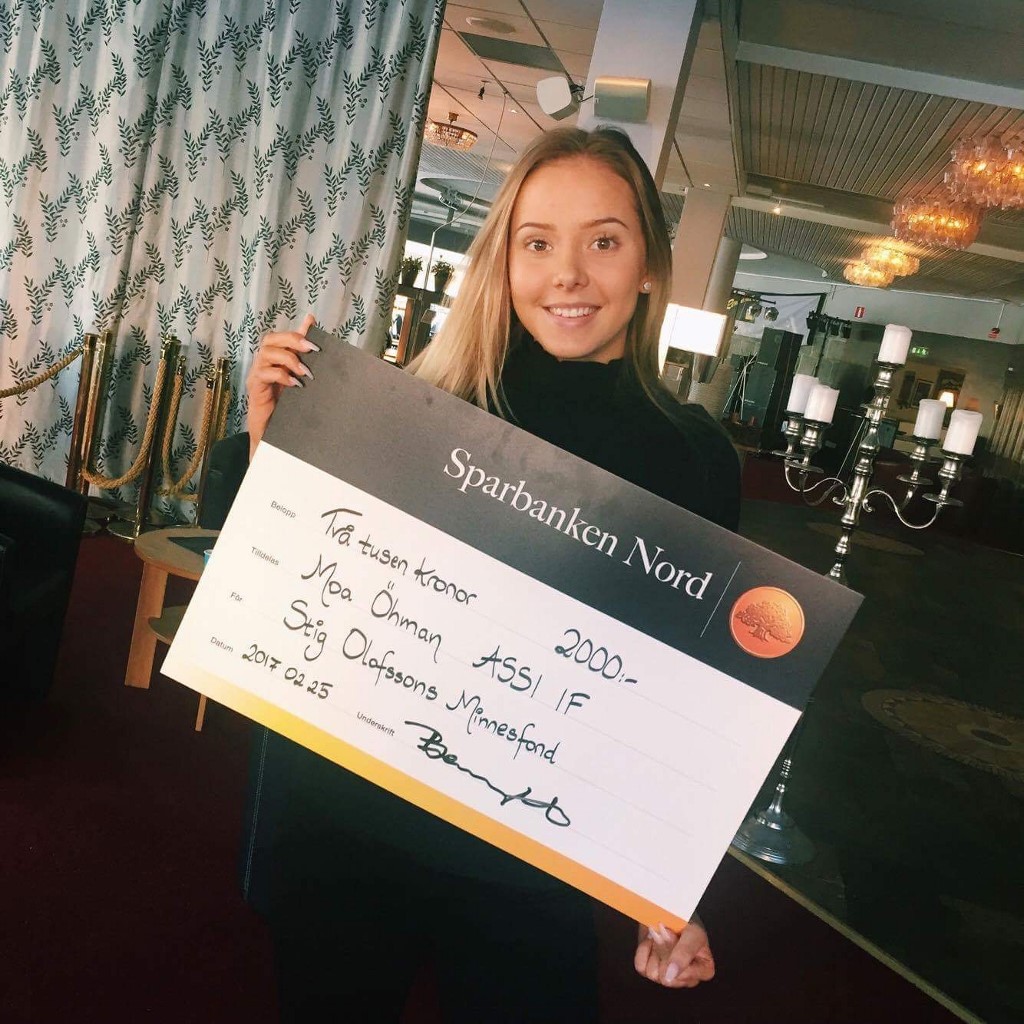 Sparbanken Nord
Belopp Två tusen kronor 2000:-
Tilldelas Moa Öhman ASSI IF
För Stig Olofssons Minnesfond
Datum 2017 02 25 Underskrift